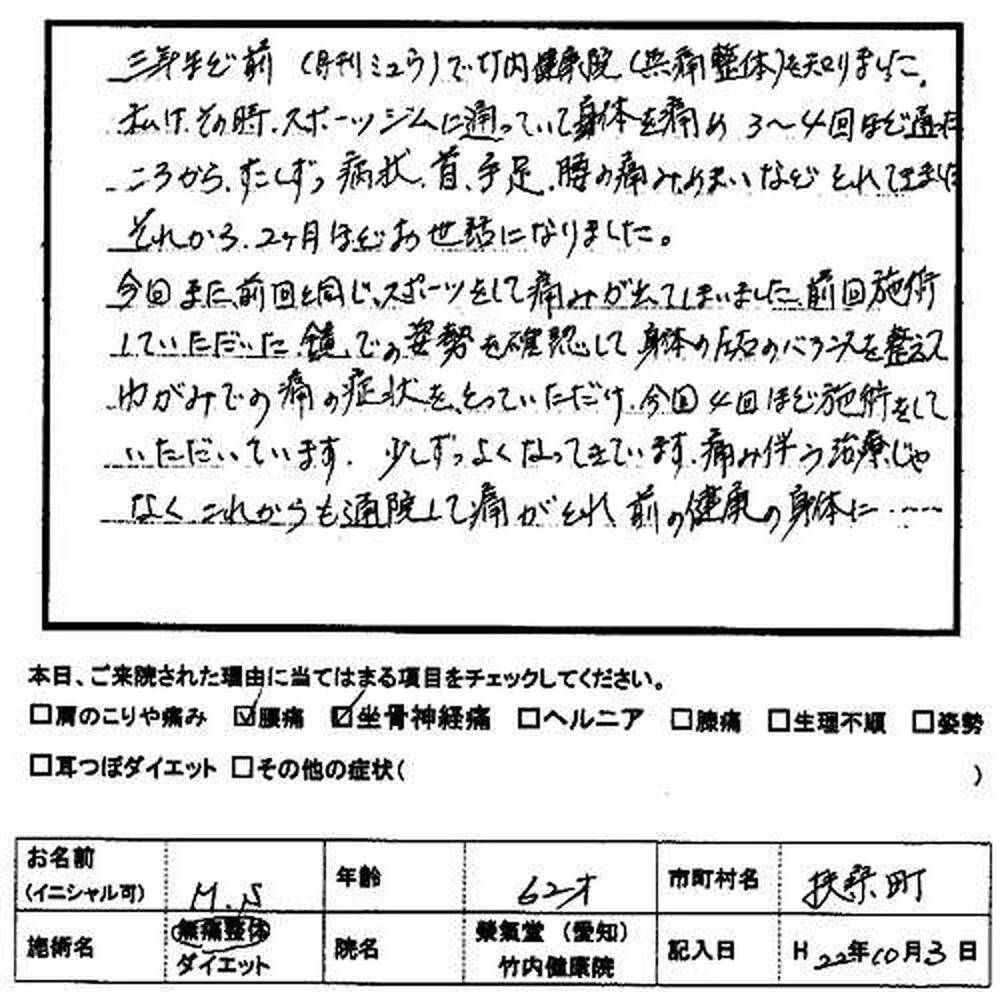 三年半ど前 (月刊ミュウ)で竹内健康院(無痛整体)を知りました。
私は、その時、スポーツジムに通っていて身体を痛め 3〜4回ほど通った
ころから、すこしずつ 病状、首、手足、腰の痛み、めまいなど とれてきました
それから、2ヶ月ほどお世話になりました。
今回また、前回と同じ、スポーツをして痛みが出てしまいました、前回施術
していただいた、鏡での姿勢を確認して 身体の左右のバランスを整えて
ゆがみでの痛の症状を、とっていただけ、今回4回ほど施術をして
いただいています、少しずつよくなってきています、痛み伴う治療じゃ
なく これからも通院して痛がとれ 前の健康の身体に・・・・
本日、ご来院された理由に当てはまる項目をチェックしてください。
□肩のこりや痛み ☑腰痛 ☑坐骨神経痛 □ヘルニア □膝痛 □生理不順 □姿勢
□耳つぼダイエット □その他の症状( )
お名前 (イニシャル可) M.S 年齢 62才 市町村名 扶桑町
施術名 無痛整体 ダイエット 院名 榮氣堂(愛知) 竹内健康院 記入日 H 22年10月3日